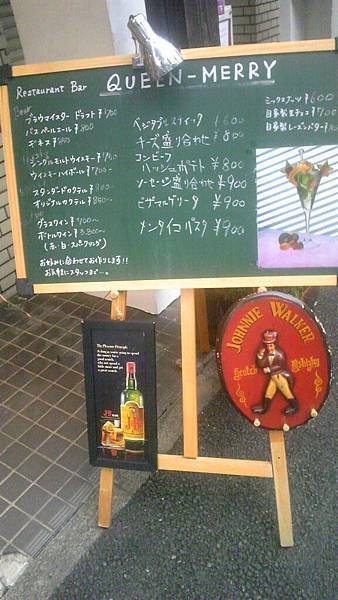 Restaurant Bar QUEEN-MERRY
Beer
ブラウマイスター ドラフト ¥700
バスペールエール ¥800
ギネス
シングルモルトウィスキー
ウイスキーハイボール ¥700~
スタンダードカクテル ¥800~
オリジナルカクテル ¥850~
グラスワイン ¥700~
ボトルワイン ¥3,300~
(赤・白・スパークリング)
お好みに合わせてお作りします!!
お気軽にスタッフまで…。
ベジタブルスティック ¥600
チーズ盛り合わせ ¥800
コンビーフ
ハッシュポテト ¥800
ソーセージ盛り合わせ ¥900
ピザマルゲリータ ¥900
メンタイコパスタ ¥900
ミックスナッツ ¥600
自家製生チョコ ¥700
自家製レーズンバター
The Pleasure Principle
J&B
JOHNNIE WALKER
Scotch Whisky